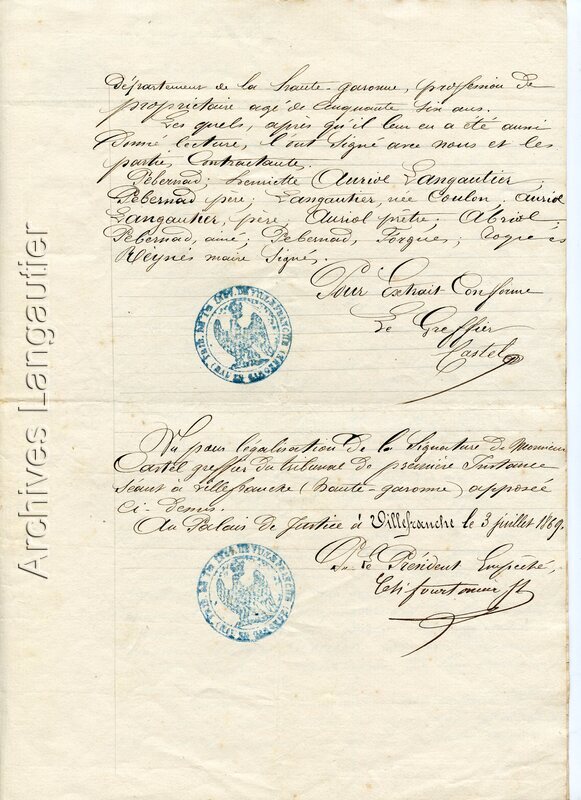 Département de la haute-garonne, profession de
propriétaire agé de cinquante six ans.
Les quels, après qu'il leur en a été aussi
Donné lecture, l'ont signé avec nous et les
parties Contractantes.
Pebernad; henriette Auriol Langautier;
Pebernad père; Langautier, née Coulon; auriol
Langautier, père, Auriol prêtre; Abriol
Pebernad, ainé; Pebernad, Forgues;
Reynès maire Signés.
Pour Extrait Conforme
Le Greffier
Castel
Vu pour légalisation de la Signature de Monsieur
Castel greffier du tribunal de première Instance
Séant à villefranche (haute-garonne) apposée
Ci-dessus.
Au Palais de Justice à Villefranche le 3 juillet 1869.
Pr. le Président Empêché,
Archives Langautier